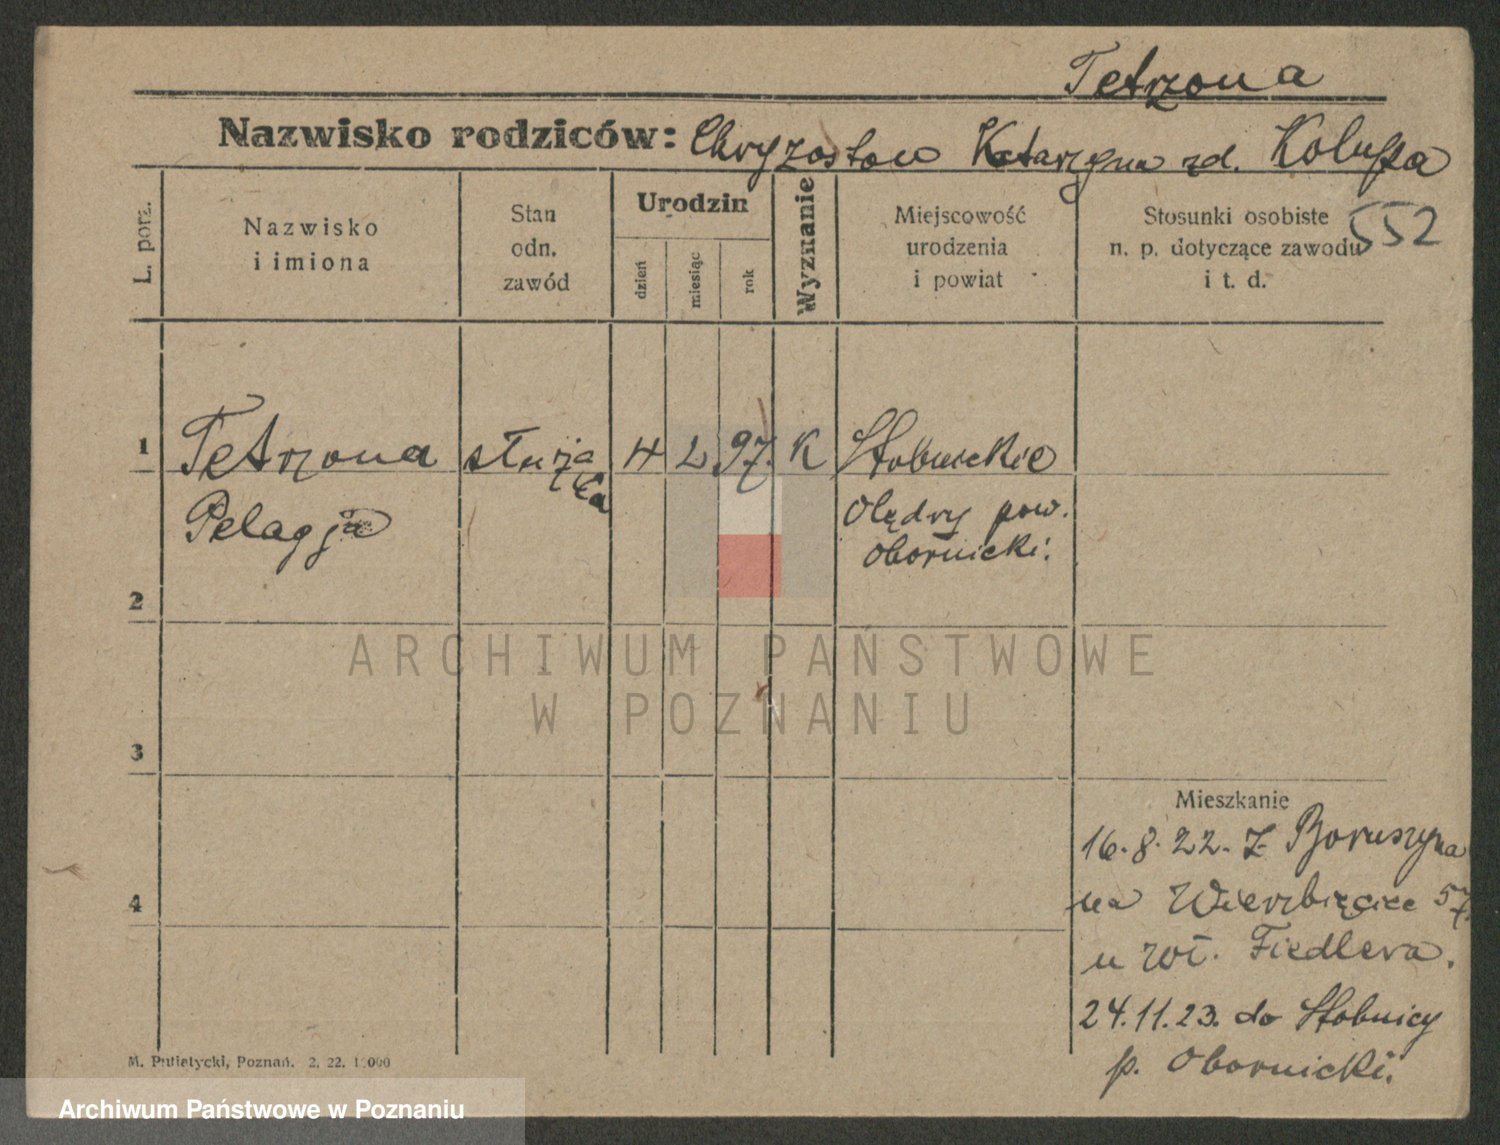 Tetrzona
Nazwisko rodziców: Chryzostom Katarzyna zd.
552
L. porz.
Nazwisko
i imiona
Stan
odn.
zawód
Urodzin
dzień
miesiąc
rok
Wyznanie
Miejscowość
urodzenia
i powiat
Stosunki osobiste
n. p. dotyczące zawodu
i t. d.
1
Tetrzona
Pelagja
służą
ca
4
2
97.
K
Stobnickie
Olędry pow.
obornicki.
2
3
4
Mieszkanie
16.8.22. z Boruszyna
na Wierzbięcice 57.
u wł. Fiedlera.
24.11.23. do Stobnicy
p. Obornicki.
M. Putiatycki, Poznań. 2. 22. 1000
ARCHIWUM PAŃSTWOWE
W POZNANIU
Archiwum Państwowe w Poznaniu